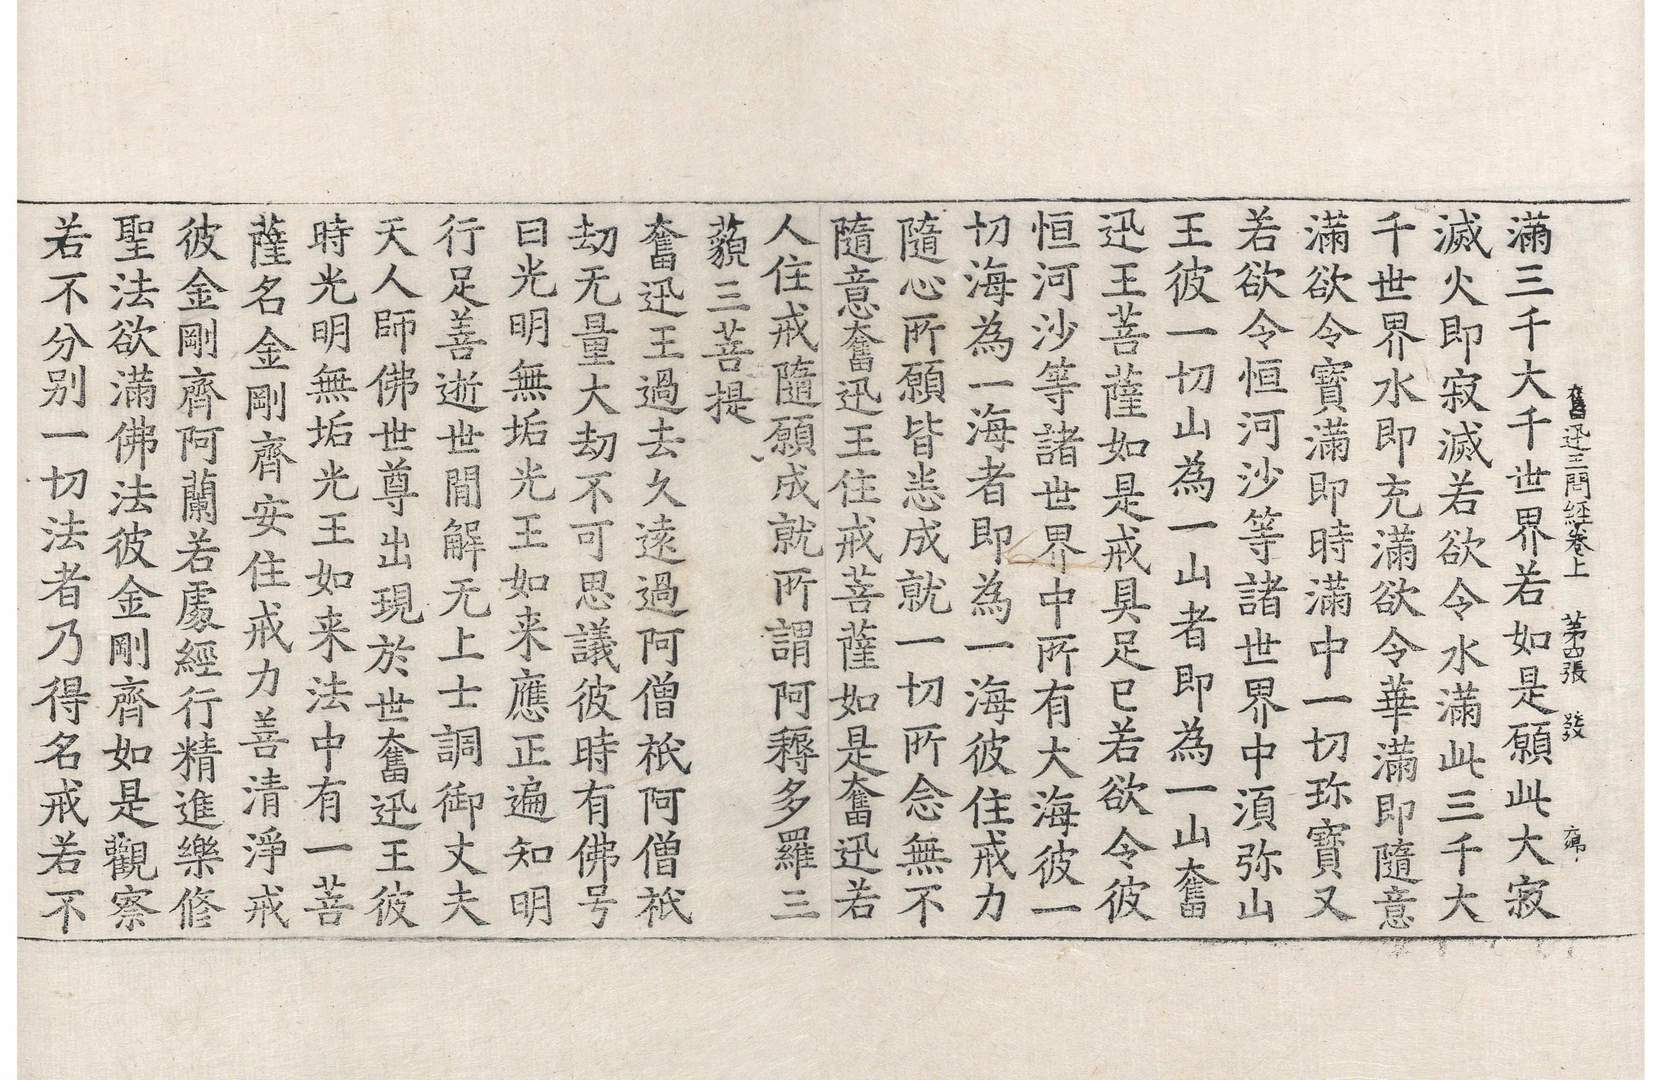 奮迅王問經卷上 第四張 發
滿三千大千世界若如是願此大寂
滅火即寂滅若欲令水滿此三千大
千世界水即充滿欲令華滿即隨意
滿欲令寶滿即時滿中一切珎寶又
若欲令恒河沙等諸世界中湏弥山
王彼一切山為一山者即為一山奮
迅王菩薩如是戒具足已若欲令彼
恒河沙等諸世界中所有大海彼一
切海為一海者即為一海彼住戒力
隨心所願皆悉成就一切所念無不
隨意奮迅王住戒菩薩如是奮迅若
人住戒隨願成就所謂阿耨多羅三
藐三菩提
奮迅王過去久遠過阿僧祇阿僧祇
劫无量大劫不可思議彼時有佛号
曰光明無垢光王如来應正遍知明
行足善逝世間解无上士調御丈夫
天人師佛世尊出現於世奮迅王彼
時光明無垢光王如来法中有一菩
薩名金剛齊安住戒力善清淨戒
彼金剛齊阿蘭若處經行精進樂修
聖法欲滿佛法彼金剛齊如是觀察
若不分別一切法者乃得名戒若不